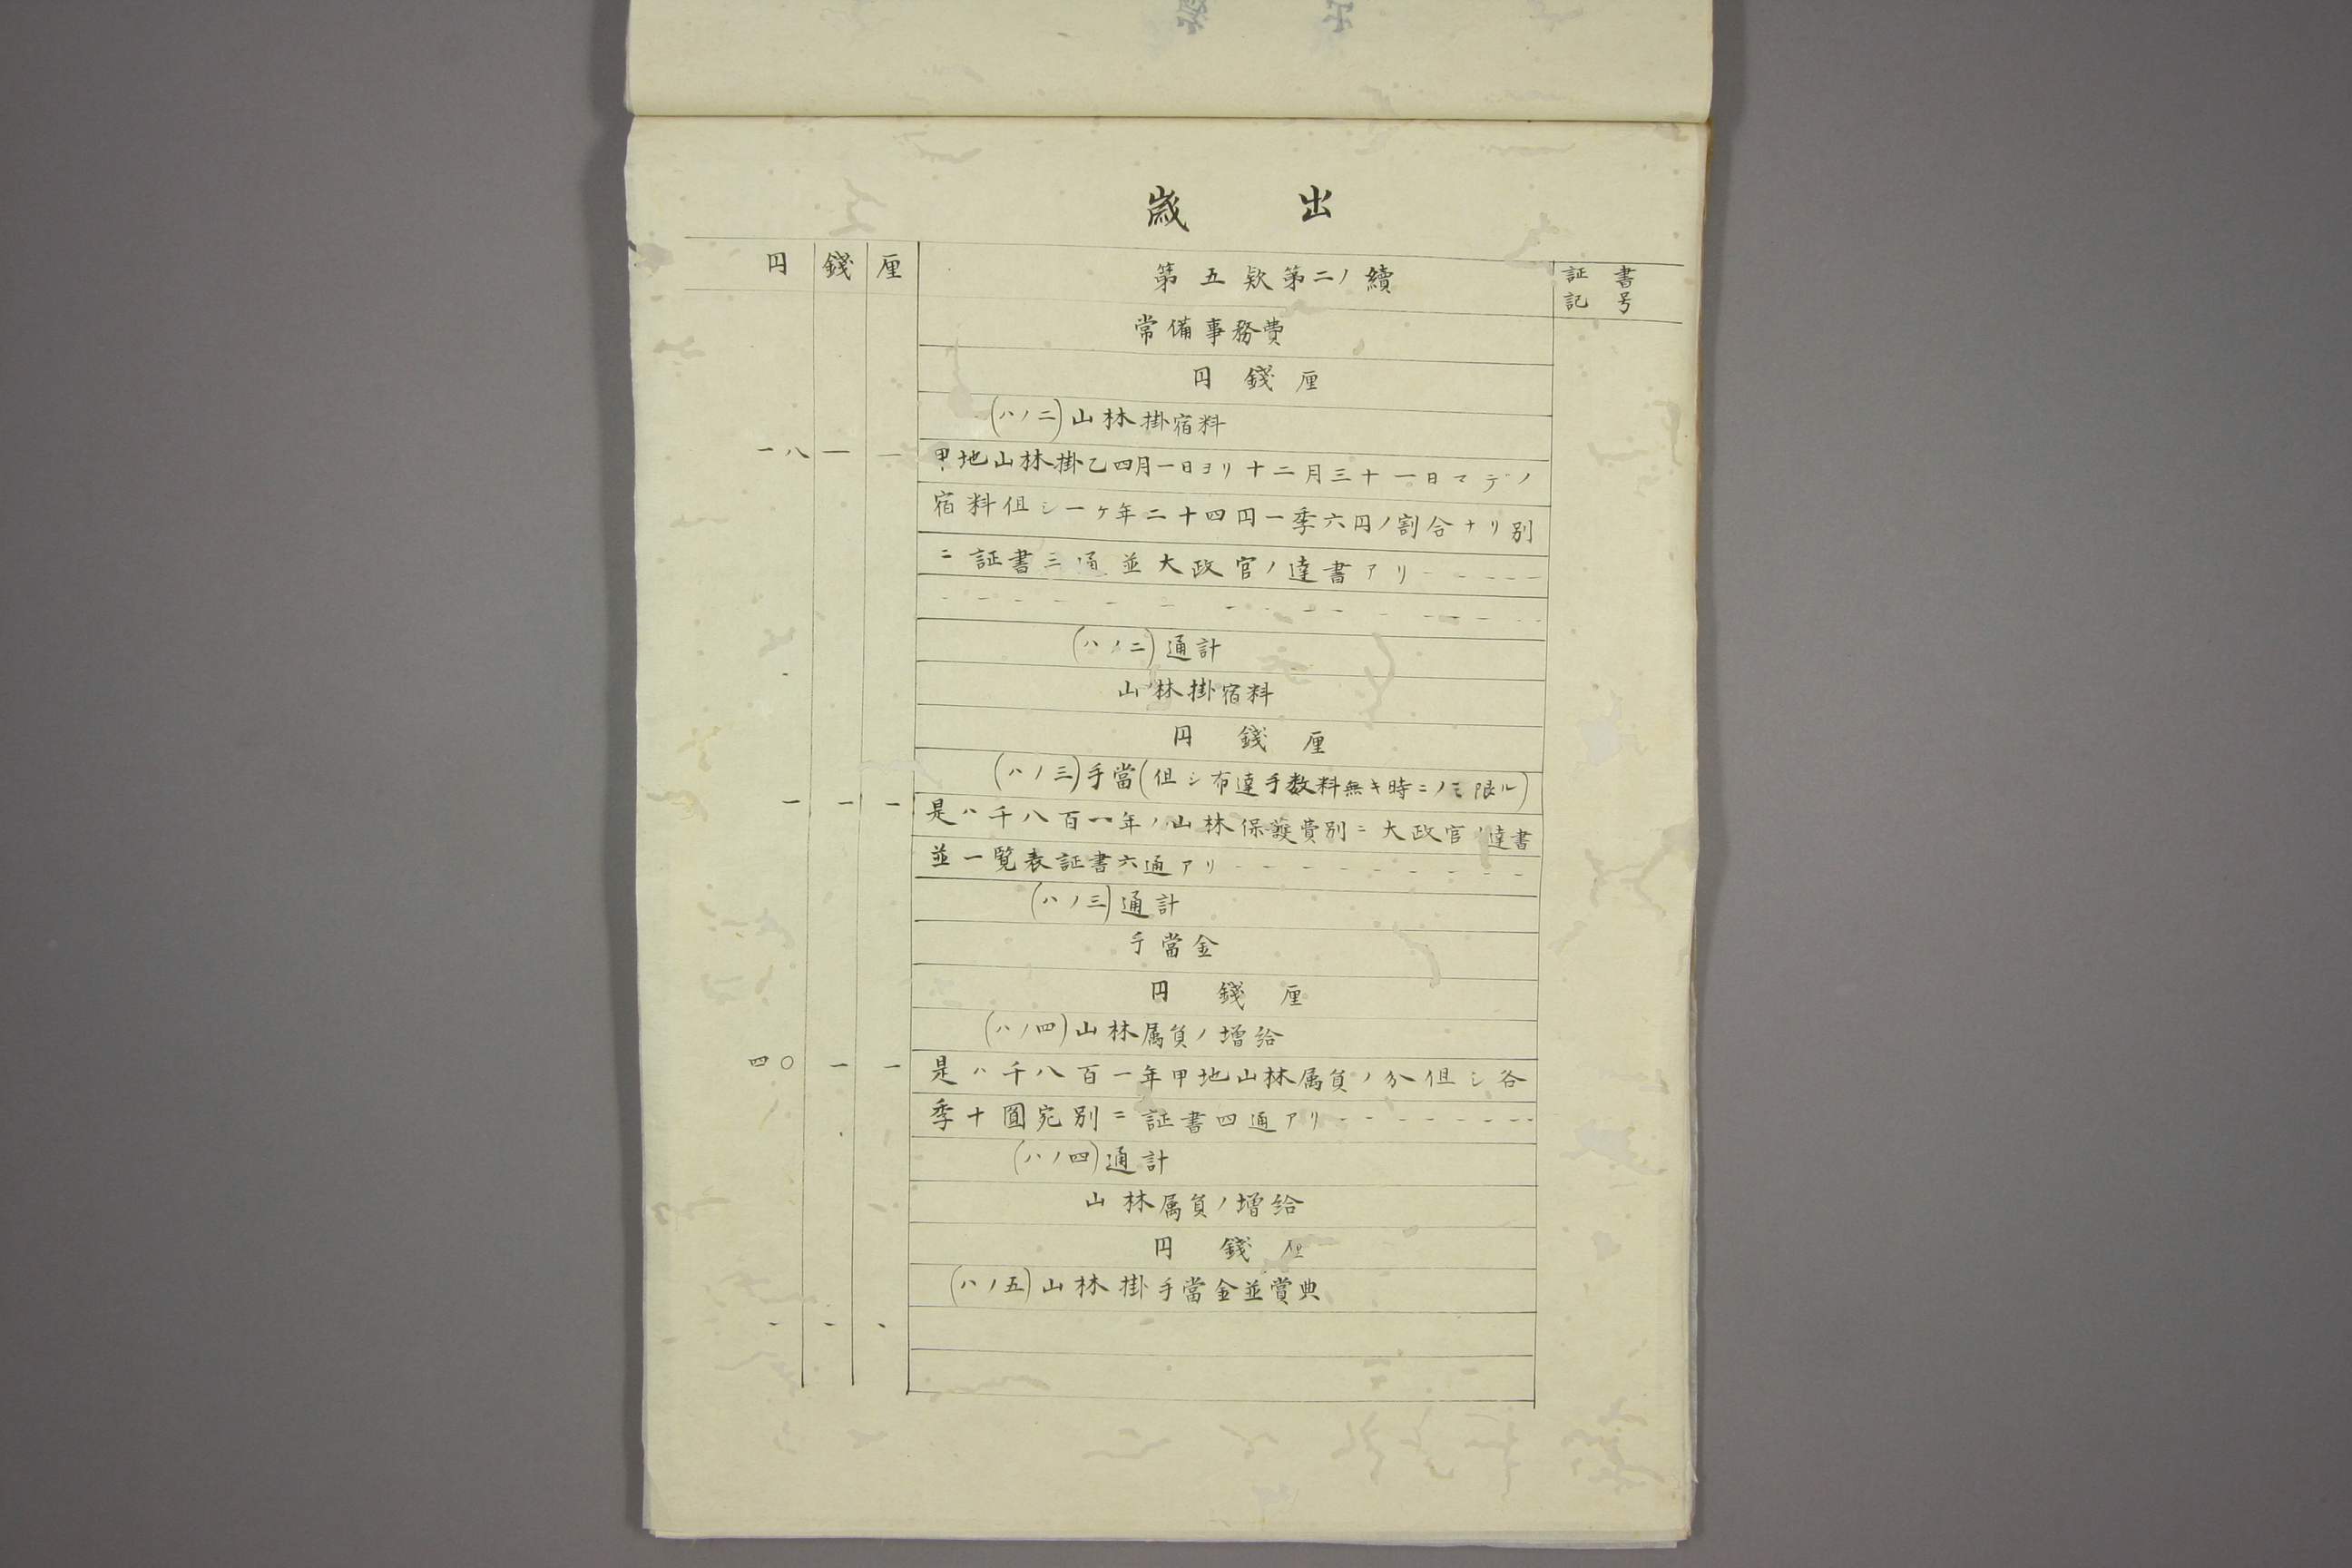 歳出
円 錢 厘 第五欵第二ノ續 証書
記号
常備事務費
円 錢 厘
(ハノ二)山林掛宿料
一八 ー ー 甲地山林掛乙四月一日ヨリ十二月三十一日マデノ
宿料但シ一ヶ年二十四円一季六円ノ割合ナリ別
ニ証書三通並大政官ノ達書アリ
(ハノ二)通計
山林掛宿料
円 錢 厘
(ハノ三)手當(但シ布達手数料無キ時ニノミ限ル)
ー ー ー 是ハ千八百一年ノ山林保護費別ニ大政官ノ達書
並一覧表証書六通アリ
(ハノ三)通計
手當金
円 錢 厘
(ハノ四)山林属負ノ増給
四〇 ー ー 是ハ千八百一年甲地山林属負ノ分但シ各
季十圓宛別ニ証書四通アリ
(ハノ四)通計
山林属負ノ増給
円 錢 厘
(ハノ五)山林掛手當金並賞典